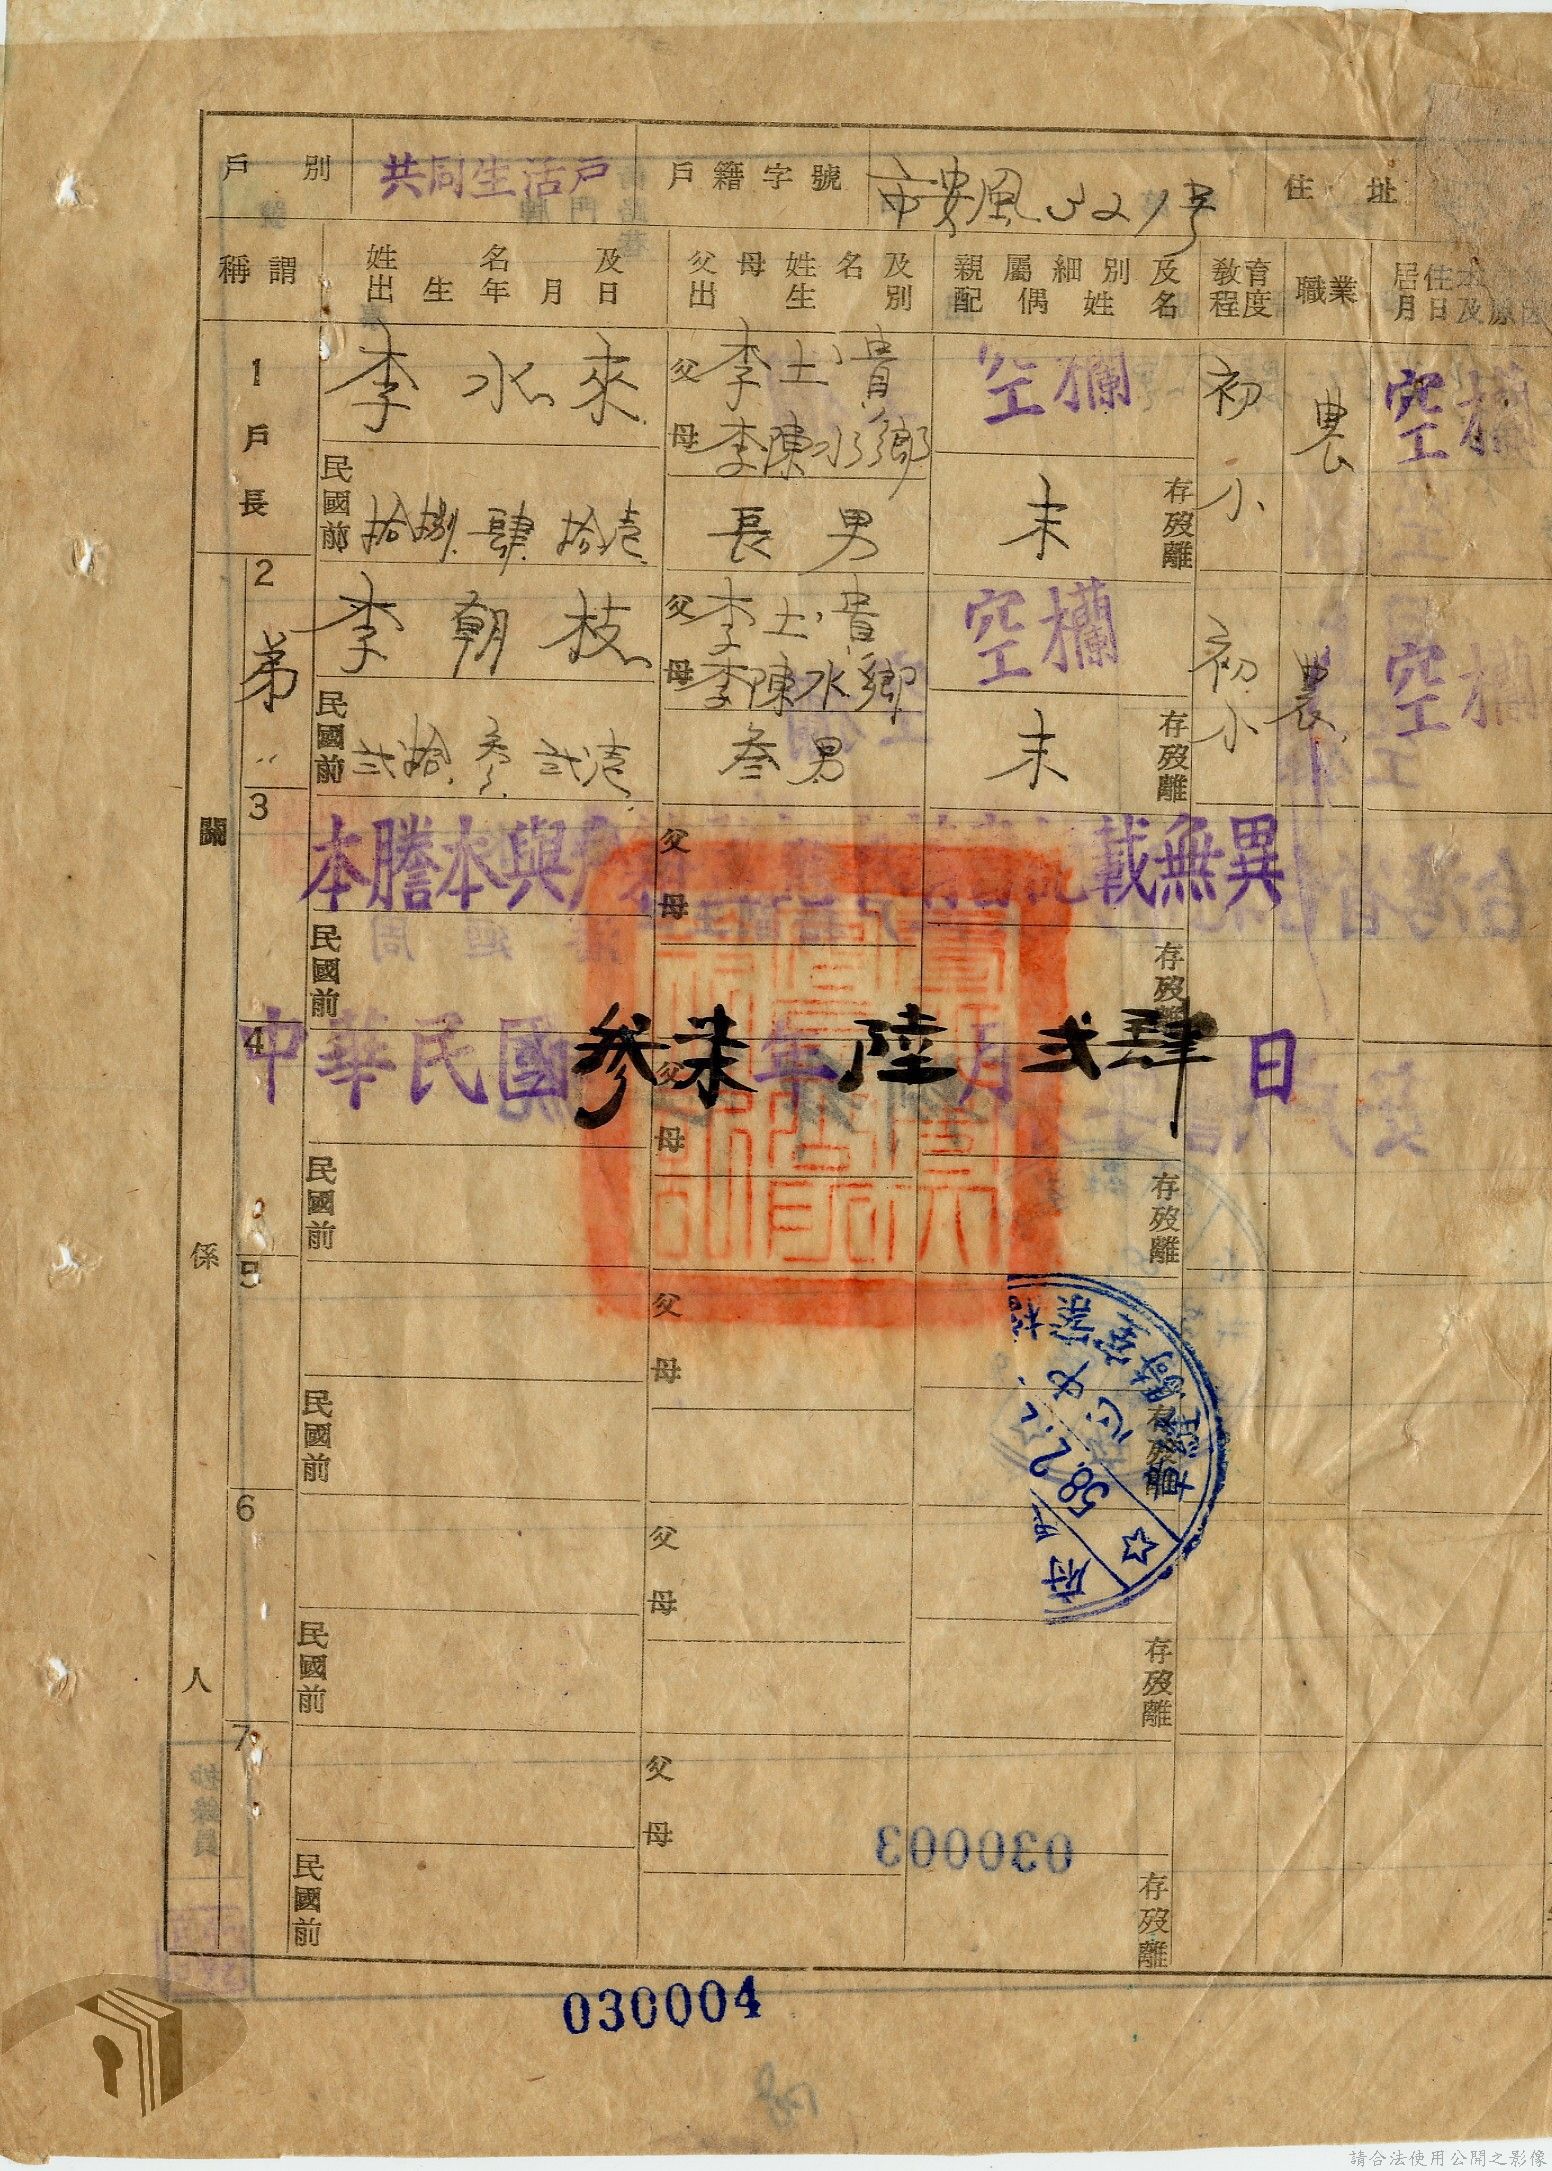 戶別 共同生活戶 戶籍字號 市安風321号 住址
稱謂 姓名及出生年月日 父母姓名及出生別 親屬細別及配偶姓名 教育程度 職業 居住本
月日及原因
1 戶長 李水來 父 李土貴 母 李陳水鄉 空欄 初小 農 空欄
民國前 拾捌 肆 拾壱 長男 未 存歿離
2 弟 李朝枝 父 李土貴 母 李陳水鄉 空欄 初小 農 空欄
民國前 弍拾 參 弍壱 叁男 未 存歿離
關係人
3 父 母
本謄本與戶籍 記載無異
民國前 存歿離
4 父 母
中華民國參柒年陸月弍肆日
民國前 存歿離
5 父 母
民國前 存歿離
58.2.
6 父 母
民國前 存歿離
7 父 母
030003
民國前 存歿離
030004
請合法使用公開之影像